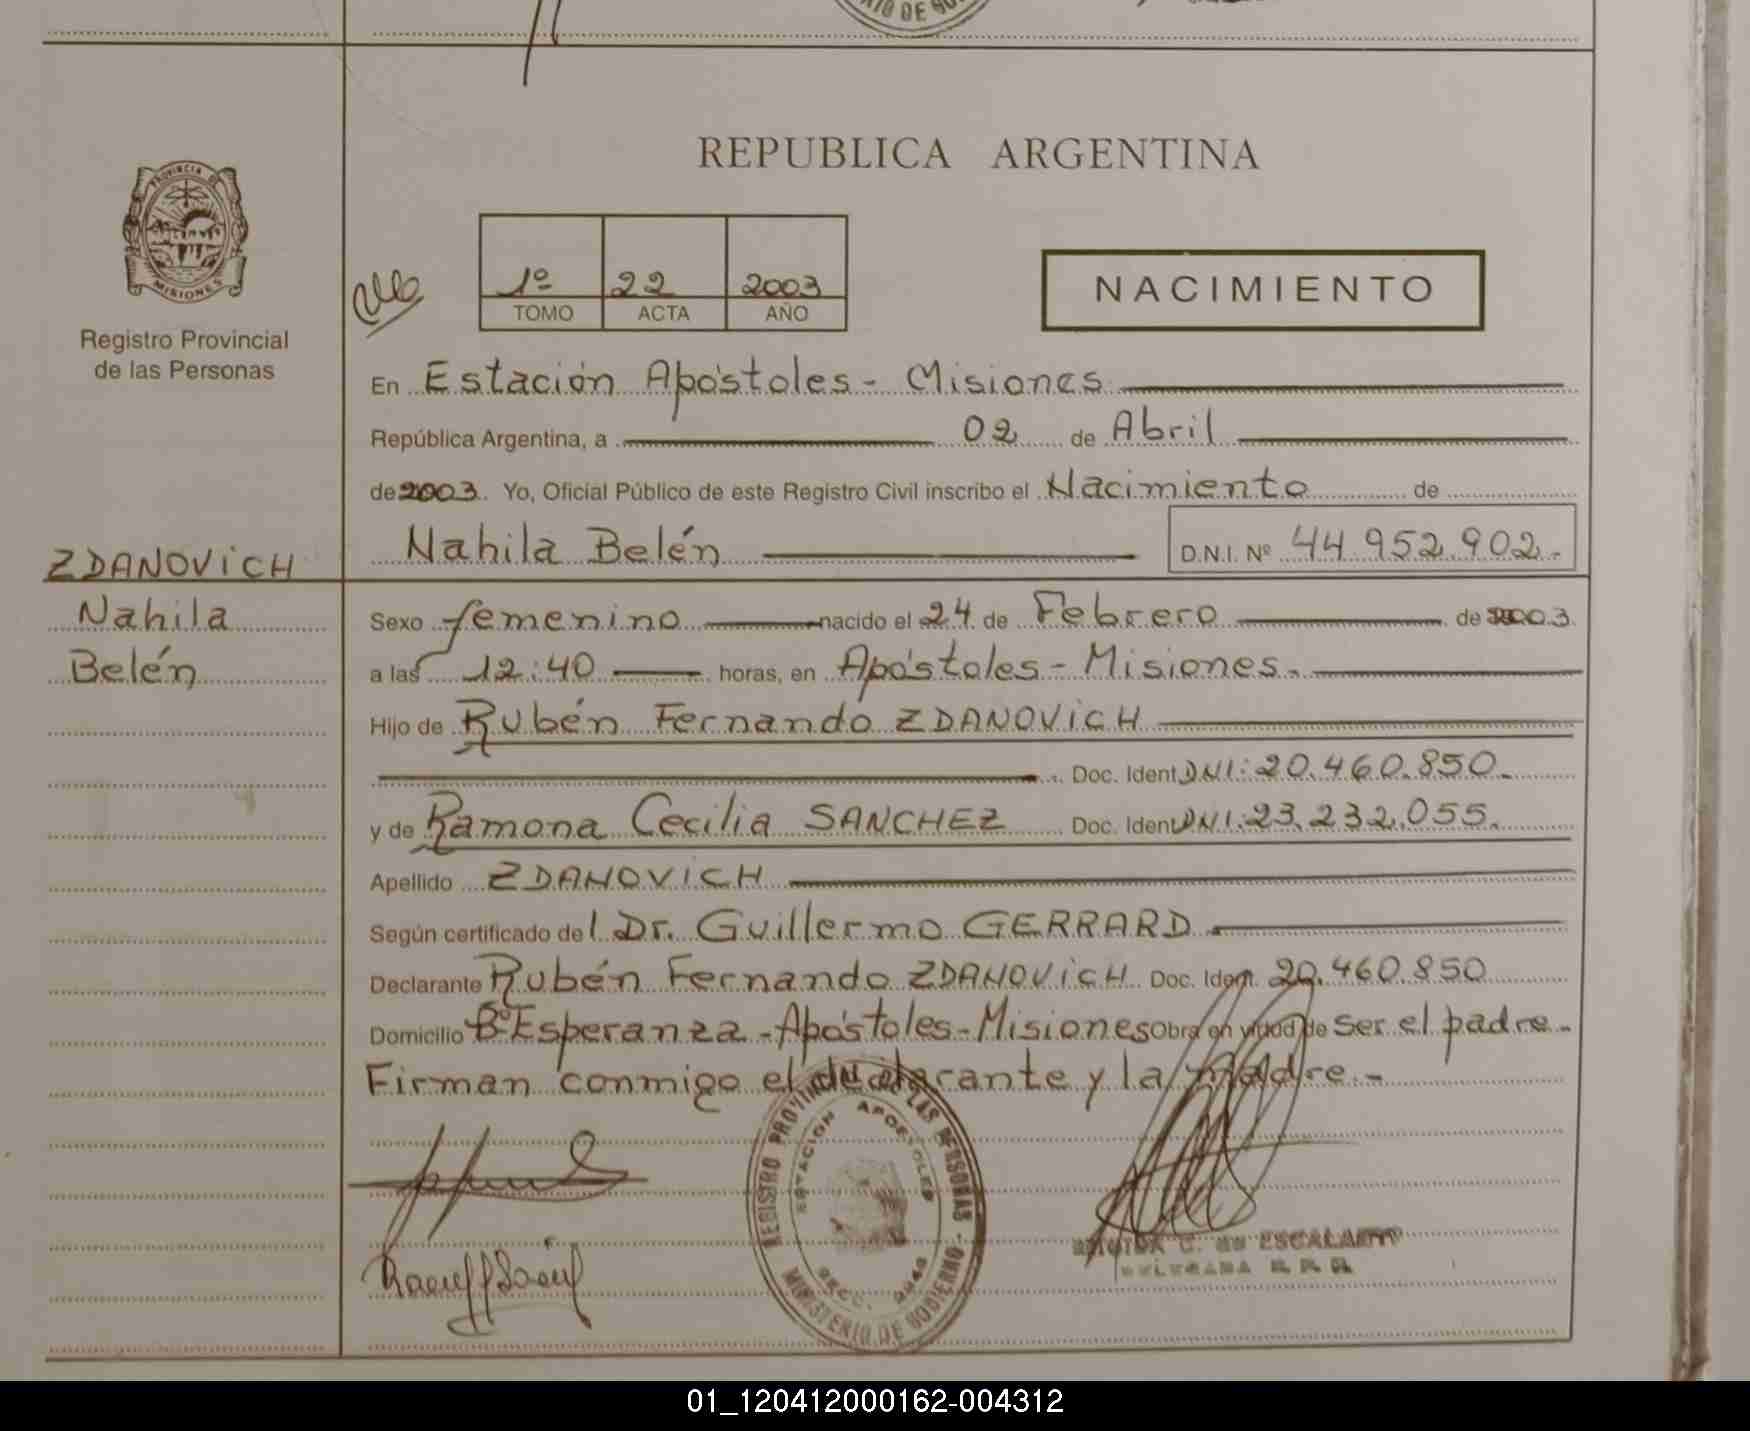 REPUBLICA ARGENTINA
PROVINCIA DE
MISIONES
Registro Provincial
de las Personas
1º 22 2003
TOMO ACTA AÑO
NACIMIENTO
En Estación Apóstoles - Misiones
República Argentina, a 02 de Abril
de 2003. Yo, Oficial Público de este Registro Civil inscribo el Nacimiento de
Nahila Belén D.N.I. Nº 44.952.902.-
ZDANOVICH
Nahila
Belén
Sexo femenino nacido el 24 de Febrero de 2003
a las 12:40 horas, en Apóstoles - Misiones.
Hijo de Rubén Fernando ZDANOVICH
Doc. Ident DNI: 20.460.850.
y de Ramona Cecilia SANCHEZ Doc. Ident DNI: 23.232.055.
Apellido ZDANOVICH
Según certificado del Dr. Guillermo GERRARD
Declarante Rubén Fernando ZDANOVICH Doc. Ident. 20.460.850
Domicilio Bº Esperanza - Apóstoles - Misiones Obra en virtud de ser el padre.-
Firman conmigo el declarante y la madre.-
REGISTRO PROVINCIAL DE LAS PERSONAS - MINISTERIO DE GOBIERNO -
ESTACION APOSTOLES
C. de ESCALANTE
01_120412000162-004312